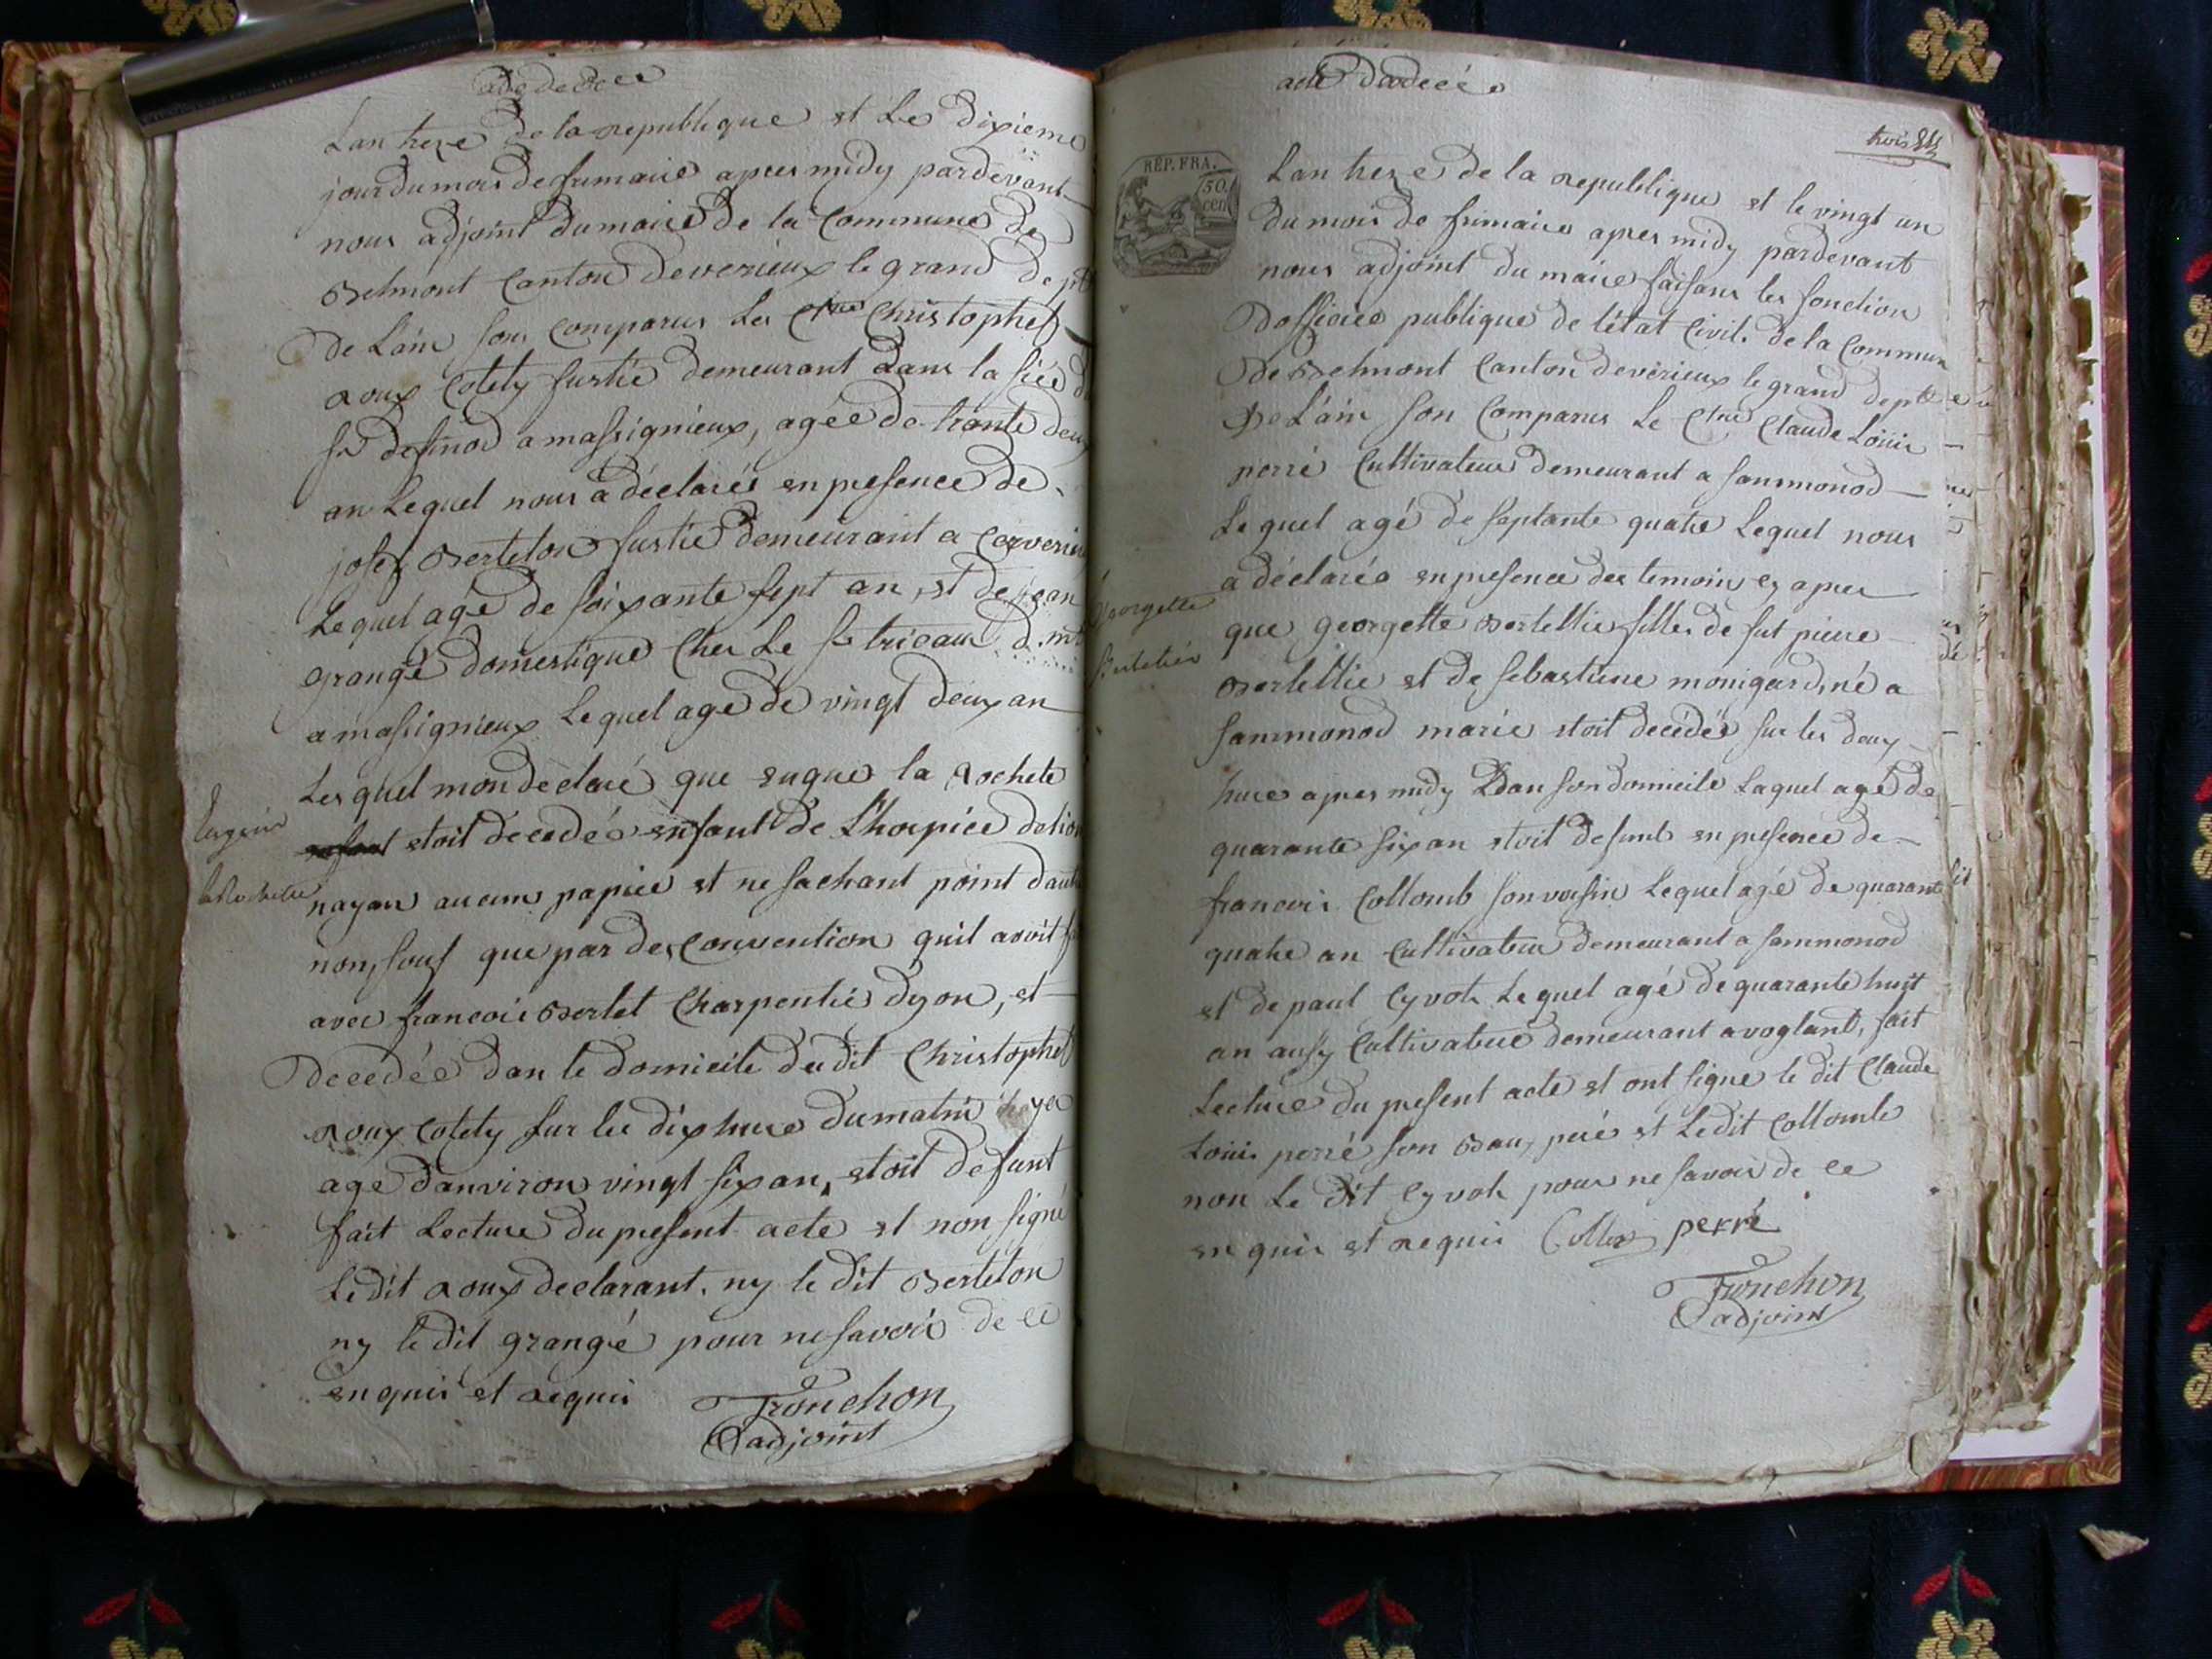 acte de deces
Lan treze de la republique et Le dixieme
jour du mois de frimaire apres midy pardevant
nous adjoint du maire de la Commune de
Belmont Canton de verieux le grand dept
De Lain sons comparus Les Cten Christophet
Roux Cotety fustie demeurant dans la
Sr a massignieux, agée de trante deux
an Lequel nous a déclarée en presence de
josef Bertelon fustie demeurant a Cerverieu
Lequel agé de soixante sept an, et de jean
grangé domestique Ches Le Sr tricaud
a massignieux Lequel age de vingt deux an
Lesquel mon déclaré que la Rochete
Eugenie
etoit decedée enfant de Lhospice de lion
la Rochette
nayan aucun papier et ne sachant point dautre
non, souf que par des convention quil avoit
avec francois Bertet Charpentié dyon, et
Decedée dan le domicile dudit Christophet
Roux Cotety sur les dix hure du matin
age danviron vingt six an, etoit defunt
fait Lecture du present acte et non signé
Ledit Roux declarant, ny le dit Bertelon
ny le dit grangé pour ne savoir de ce
enquis et requis
Tronchon
adjoint
acte de decés
trois
RÉP. FRA.
50 cen
Lan treze de la republique et le vingt un
du mois de frimaire apres midy pardevant
nous adjoint du maire faisans les fonction
Dofficier publique de létat Civil de la Commun
de Belmont Canton de verieux le grand dept
De Lain son Comparus Le Cten Claude Louis
perré Cultivateur demeurant a sammonod
Lequel agé de septante quatre Lequel nous
a déclarée en presence des temoin cy apres
Georgette
que georgette Bertellie filles de fut pierre
Bertelier
Bertellie et de sebastiene monigard, né a
sammonod marie etoit decédée sur les deux
hure apres midy Dan son domicile Laquel age de
quarante six an etoit defunte en presence de
francois Collomb son voisin Lequel agé de quarante
quatre an Cultivateur demeurant a sammonod
et de paul Cyvote Lequel agé de quarante huit
an aussy Cultivateur demeurant a voglant, fait
Lecture du present acte et ont signe le dit Claude
Louis perré son Beau peré et Ledit Collomb
non Le dit Cyvote pour ne savoir de ce
enquis et requis Collomb perré
Tronchon
adjoint